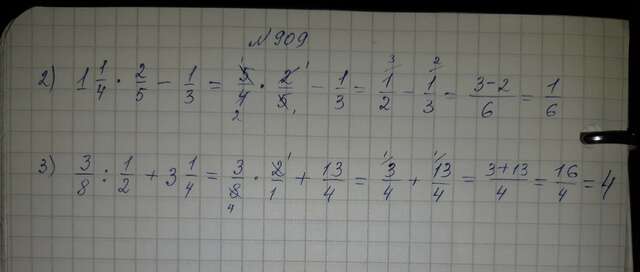 №909
2) 1 1/4 · 2/5 − 1/3 = 5/4 · 2/5 − 1/3 = 1/2 − 1/3 = (3−2)/6 = 1/6
3) 3/8 : 1/2 + 3 1/4 = 3/8 · 2/1 + 13/4 = 3/4 + 13/4 = (3+13)/4 = 16/4 = 4